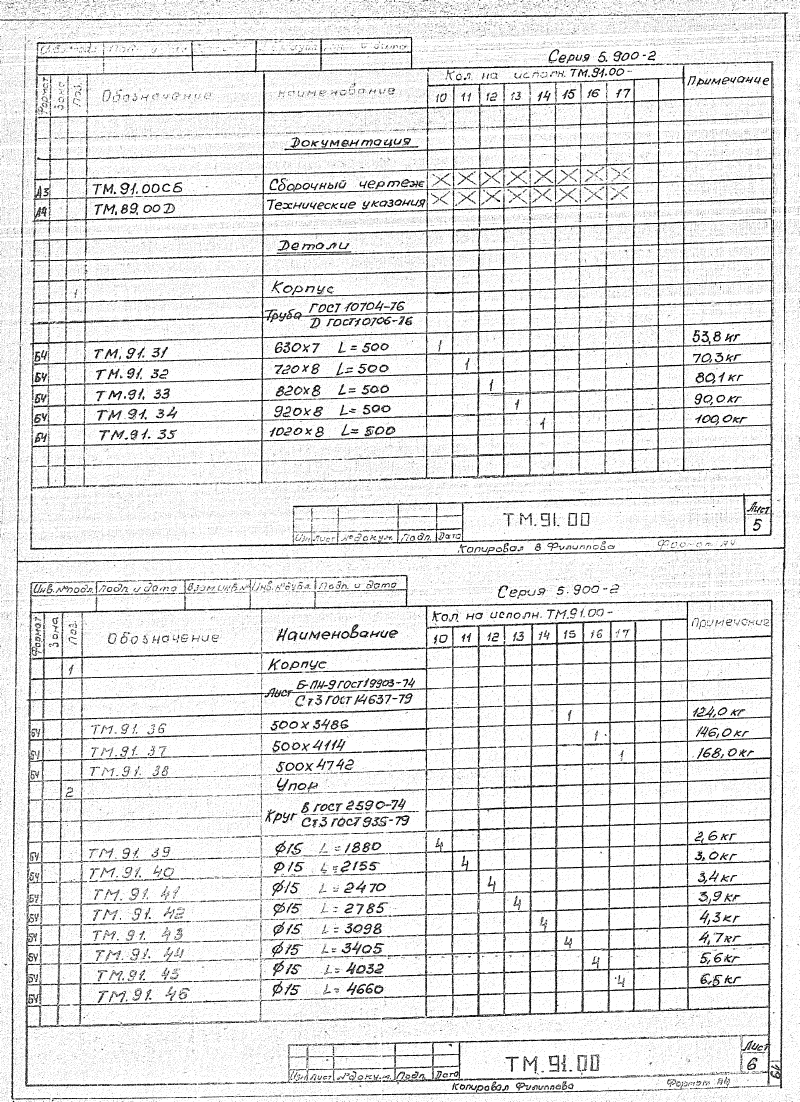 Серия 5.900-2
Формат Зона Поз. Обозначение Наименование Кол. на исполн. ТМ.91.00- Примечание
10 11 12 13 14 15 16 17
Документация
А3 ТМ.91.00СБ Сборочный чертеж X X X X X X X X
А4 ТМ.89.00Д Технические указания X X X X X X X X
Детали
1 Корпус
Труба ГОСТ 10704-76
Д ГОСТ 10706-76
БЧ ТМ.91.31 630х7 L=500 1 53,8 кг
БЧ ТМ.91.32 720х8 L=500 1 70,3 кг
БЧ ТМ.91.33 820х8 L=500 1 80,1 кг
БЧ ТМ.91.34 920х8 L=500 1 90,0 кг
БЧ ТМ.91.35 1020х8 L=500 1 100,0 кг
Изм Лист № докум. Подп. Дата
ТМ.91.00
Лист
5
Копировал В Филиппова Формат А4
Инв.№подл. Подп. и дата Взам.инв.№ Инв.№дубл. Подп. и дата
Серия 5.900-2
Формат Зона Поз. Обозначение Наименование Кол. на исполн. ТМ.91.00- Примечание
10 11 12 13 14 15 16 17
1 Корпус
Лист Б-ПН-9 ГОСТ 19903-74
Ст3 ГОСТ 14637-79
БЧ ТМ.91.36 500х3486 1 124,0 кг
БЧ ТМ.91.37 500х4114 1 146,0 кг
БЧ ТМ.91.38 500х4742 1 168,0 кг
2 Упор
Круг В ГОСТ 2590-74
Ст3 ГОСТ 935-79
БЧ ТМ.91.39 Ф15 L=1880 4 2,6 кг
БЧ ТМ.91.40 Ф15 L=2155 4 3,0 кг
БЧ ТМ.91.41 Ф15 L=2470 4 3,4 кг
БЧ ТМ.91.42 Ф15 L=2785 4 3,9 кг
БЧ ТМ.91.43 Ф15 L=3098 4 4,3 кг
БЧ ТМ.91.44 Ф15 L=3405 4 4,7 кг
БЧ ТМ.91.45 Ф15 L=4032 4 5,6 кг
БЧ ТМ.91.46 Ф15 L=4660 4 6,5 кг
Изм Лист № докум. Подп. Дата
ТМ.91.00
Лист
6
Копировал Филиппова Формат А4